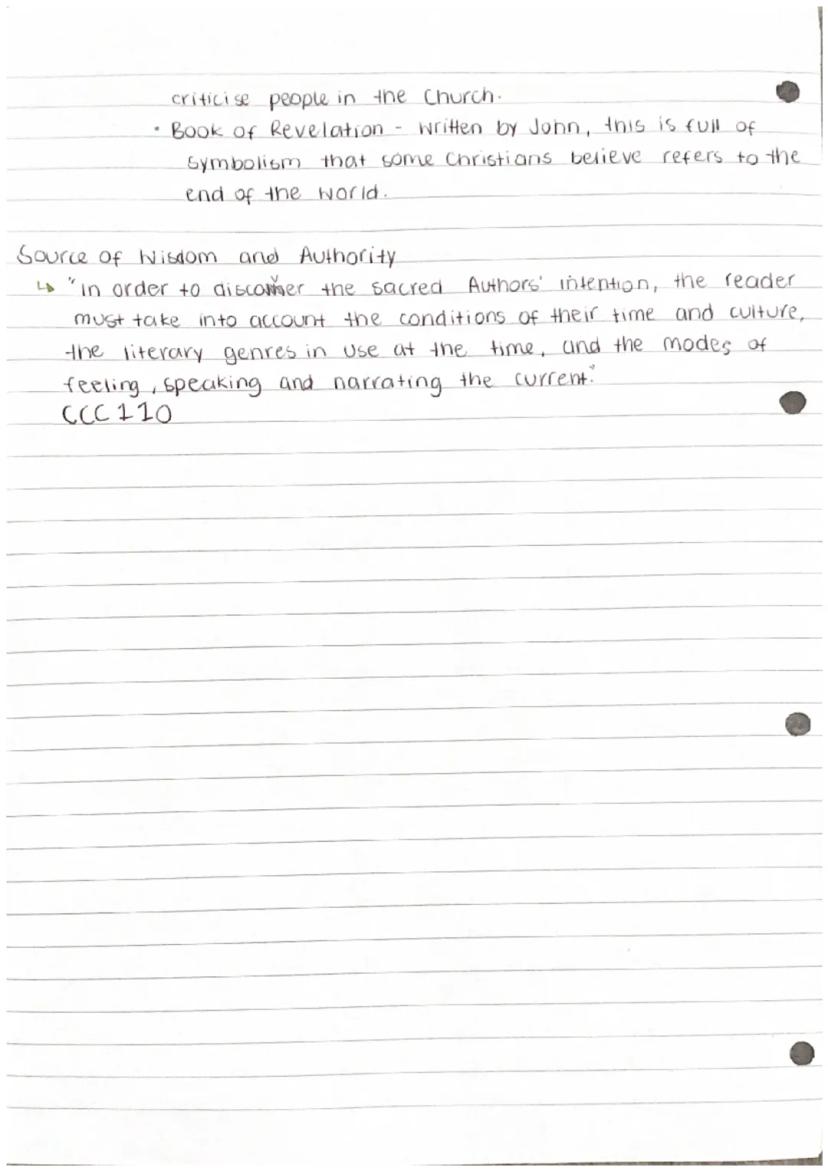 criticise people in the Church.
• Book of Revelation - written by John, this is full of
symbolism that some Christians believe refers to the
end of the world.
Source of Wisdom and Authority
↳ "in order to discover the sacred Authors' intention, the reader
must take into account the conditions of their time and culture,
the literary genres in use at the time, and the modes of
feeling, speaking and narrating the current."
CCC 110